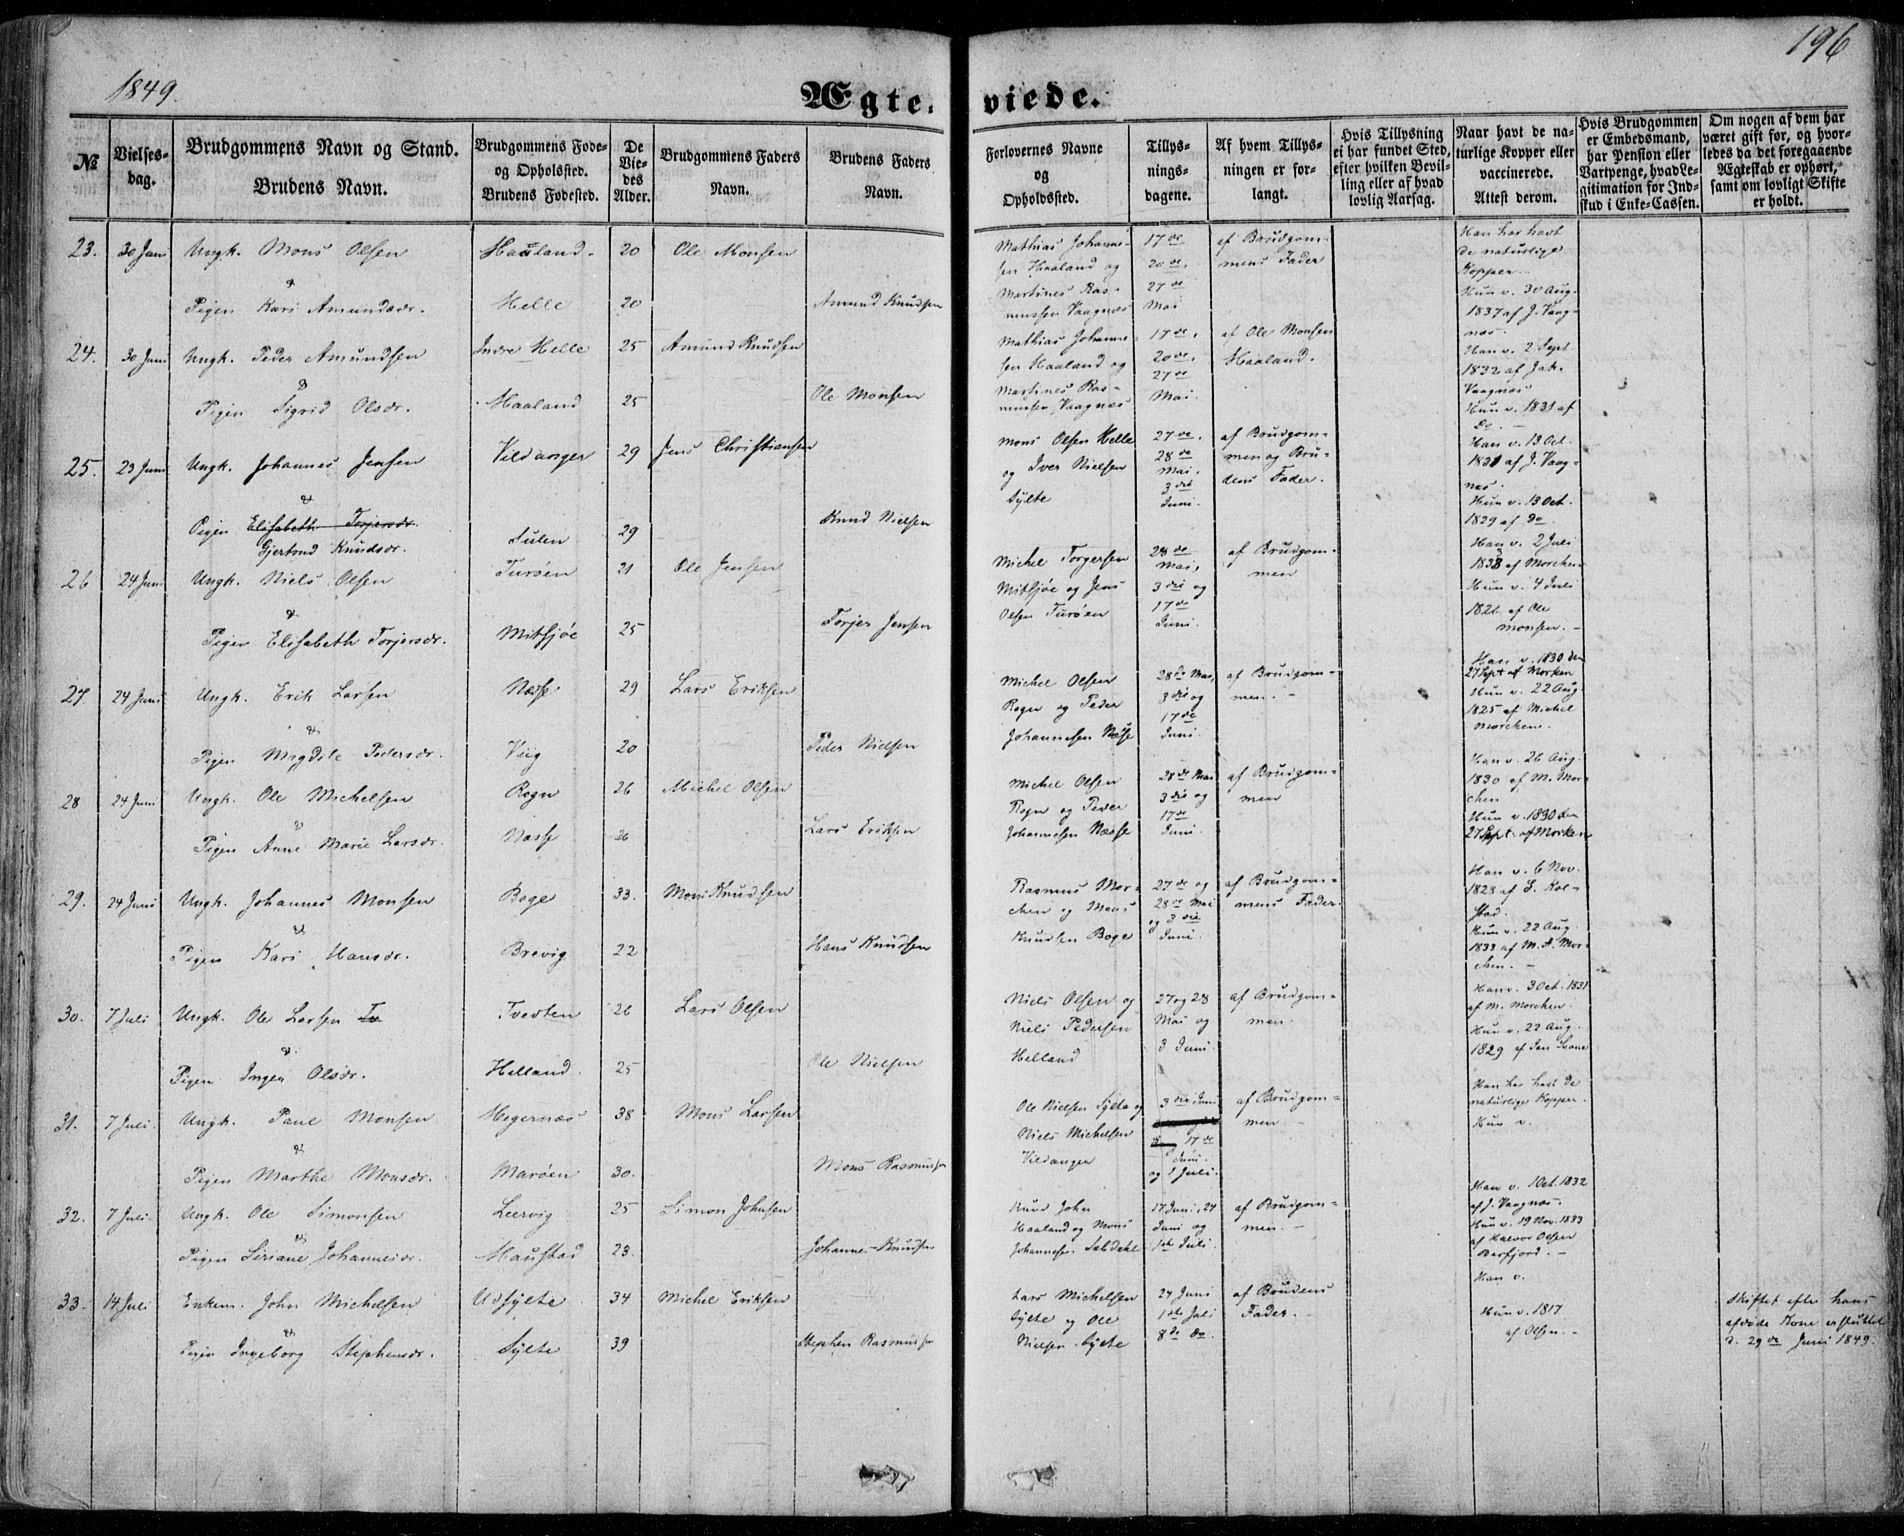 1849.
196
Ægte-
viede.
№
Vielses-
dag.
Brudgommens Navn og Stand.
Brudens Navn.
Brudgommens Føde-
og Opholssted.
Brudens Fødested.
De
Vie-
des
Alder.
Brudgommens Faders
Navn.
Brudens Faders
Navn.
Forlovernes Navne
og
Opholdssted.
Tillys-
nings-
dagene.
Af hvem Tillys-
ningen er for-
langt.
Hvis Tillysning
ei har fundet Sted,
efter hvilken Bevil-
ling eller af hvad
lovlig Aarsag.
Naar havt de na-
turlige Kopper eller
vaccinerede.
Attest derom.
Hvis Brudgommen
er Embedsmand,
har Pension eller
Vartpenge, hvad Le-
gitimation for Ind-
skud i Enke-Cassen.
Om nogen af dem har
været gift før, og hvor-
ledes da det foregaaende
Ægteskab er ophørt,
samt om lovligt Skifte
er holdt.
23. 30 Juni Ungk. Mons Olsen Haaland. 20 Ole Monsen
&
Pigen Kari Amundsdr. Helle 20 Amund Knudsen
Mathias Johanne-
sen Haaland og
Martines Ras-
mussen Vaagnæs
17de
20de,
27de
Mai
af Brudgom-
mens Fader
Han har havt
de naturlige
Kopper.
Hun v. 30 Aug.
1837 af J. Vaag-
næs.
24. 30 Juni Ungk. Peder Amundsen Indre Helle 25 Amund Knudsen
&
Pigen Sigrid Olsdr. Haaland 25 Ole Monsen
Mathias Johanne-
sen Haaland og
Martines Ras-
mussen, Vaagnæs
17de
20de,
27de
Mai.
af Ole Monsen
Haaland.
Han v. 2 Sept
1832 af Jak.
Vaagnæs
Hun v. 1831 af
Do.
25. 23 Juni Ungk. Johannes Jensen Vildanger 29 Jens Christiansen
&
Pigen Elisabeth Torjersdr.
Gjertrud Knudsdr. Sulen 29 Knud Nielsen
Mons Olsen Helle
og Iver Nielsen
Sylte
27de,
28de
Mai,
3die
Juni.
af Brudgom-
men og Bru-
dens Fader.
Han v. 13 Oct.
1831 af J. Vaag-
næs.
Hun v. 13 Oct.
1829 af Do
26 24 Juni Ungk. Niels Olsen Turøen 21 Ole Jensen
&
Pigen Elisabeth Torjersdr. Mitsjøe 25 Torjer Jensen
Michel Torgersen
Mitsjøe og Jens
Olsen Turøen
28de
Mai,
3die og
17de
Juni.
af Brudgom-
men
Han v. 2 Juli
1833 af Morchen
Hun v. 4 Juli
1826 af Ole
Monsen.
27. 24 Juni Ungk. Erik Larsen Næsse 29 Lars Eriksen
&
Pigen Magdele Pedersdr. Viig 20 Peder Nielsen
Michel Olsen
Rogn og Peder
Johannesen Næsse
28de Mai,
3die og
17de
Juni.
af Brudgom-
men.
Han v. 1830 den
27 Sept af Morken
Hun v. 22 Aug.
1825 af Michel
Morchen.
28 24 Juni Ungk. Ole Michelsen Rogn 26 Michel Olsen
&
Pigen Anne Marie Larsdr. Næsse 26 Lars Eriksen
Michel Olsen
Rogn og Peder
Johannesen Næsse
28de Mai
3die og
17de
Juni.
af Brudgom-
men
Han v. 26 Aug.
1830 af M. Mor-
chen
Hun v. 1830 den
27 Sept. af Morken
29. 24 Juni Ungk. Johannes Monsen Boge 33. Mons Knudsen
&
Pigen Kari Hansdr. Brevig 22 Hans Knudsen
Rasmus Mor-
chen og Mons
Knudsen Boge
27de og
28de Mai
og 3die
Juni.
af Brudgom-
mens Fader.
Han v. 6 Nov.
1828 af L. Kol-
stad.
Hun v. 22 Aug.
1833 af M. A. Mor-
chen.
30. 7 Juli Ungk. Ole Larsen Tv Tvedten 26 Lars Olsen
&
Pigen Ingen Olsdr. Helland. 25 Ole Nielsen
Niels Olsen og
Niels Pedersen
Helland
27 og 28
Mai og
3 Juni.
af Brudgom-
men.
Han v. 3 Oct. 1831
af M. Morchen.
Hun v. 22 Aug.
1829 af Jan Krone
31. 7 Juli. Ungk. Paul Monsen Hegernæs 38 Mons Larsen
&
Pigen Marthe Monsdr. Marøen 30. Mons Rasmussen
Ole Nielsen Sylte og
Niels Michelsen
Vildanger
3die Juni
17de
Juni.
og 1 Juli.
af Brudgom-
men.
Han har havt de
naturlige Kopper.
Hun v.
32. 7 Juli. Ungk. Ole Simonsen Leervig 25 Simon Johnsen
&
Pigen Seriane Johannesdr. Maustad 23. Johannes Knudsen
Knud John
Haaland og Mons
Johannesen
17 Juni, 24
Juni og
1ste Juli.
af Brudgom-
men.
Han v. 1 Oct. 1832
af J. Vaagnæs.
Hun v. 19 Nov. 1833
af Halvor Olsen
Barfjord.
33. 14 Juli Enkem. John Michelsen Udsylte 34 Michel Eriksen
&
Pige Ingeborg Stephensdr. Sylte 39 Stephen Rasmussen
Lars Michelsen
Sylte og Ole
Nielsen Sylte
24 Juni
1ste Juli
8de Do.
af Brudens
Fader.
Han v.
Hun v. 1817
af Olsen.
Skiftet efter hans
afdøde Kone er sluttet
d. 29de Juni 1849.